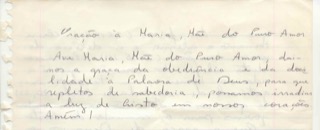 Oração à Maria, Mãe do Puro Amor
Ave Maria, Mãe do Puro Amor, dai-
nos a graça da obediência e da doci
lidade à Palavra de Deus, para que
repletos de sabedoria, possamos irradiar
a luz de Cristo em nossos corações
Amém!